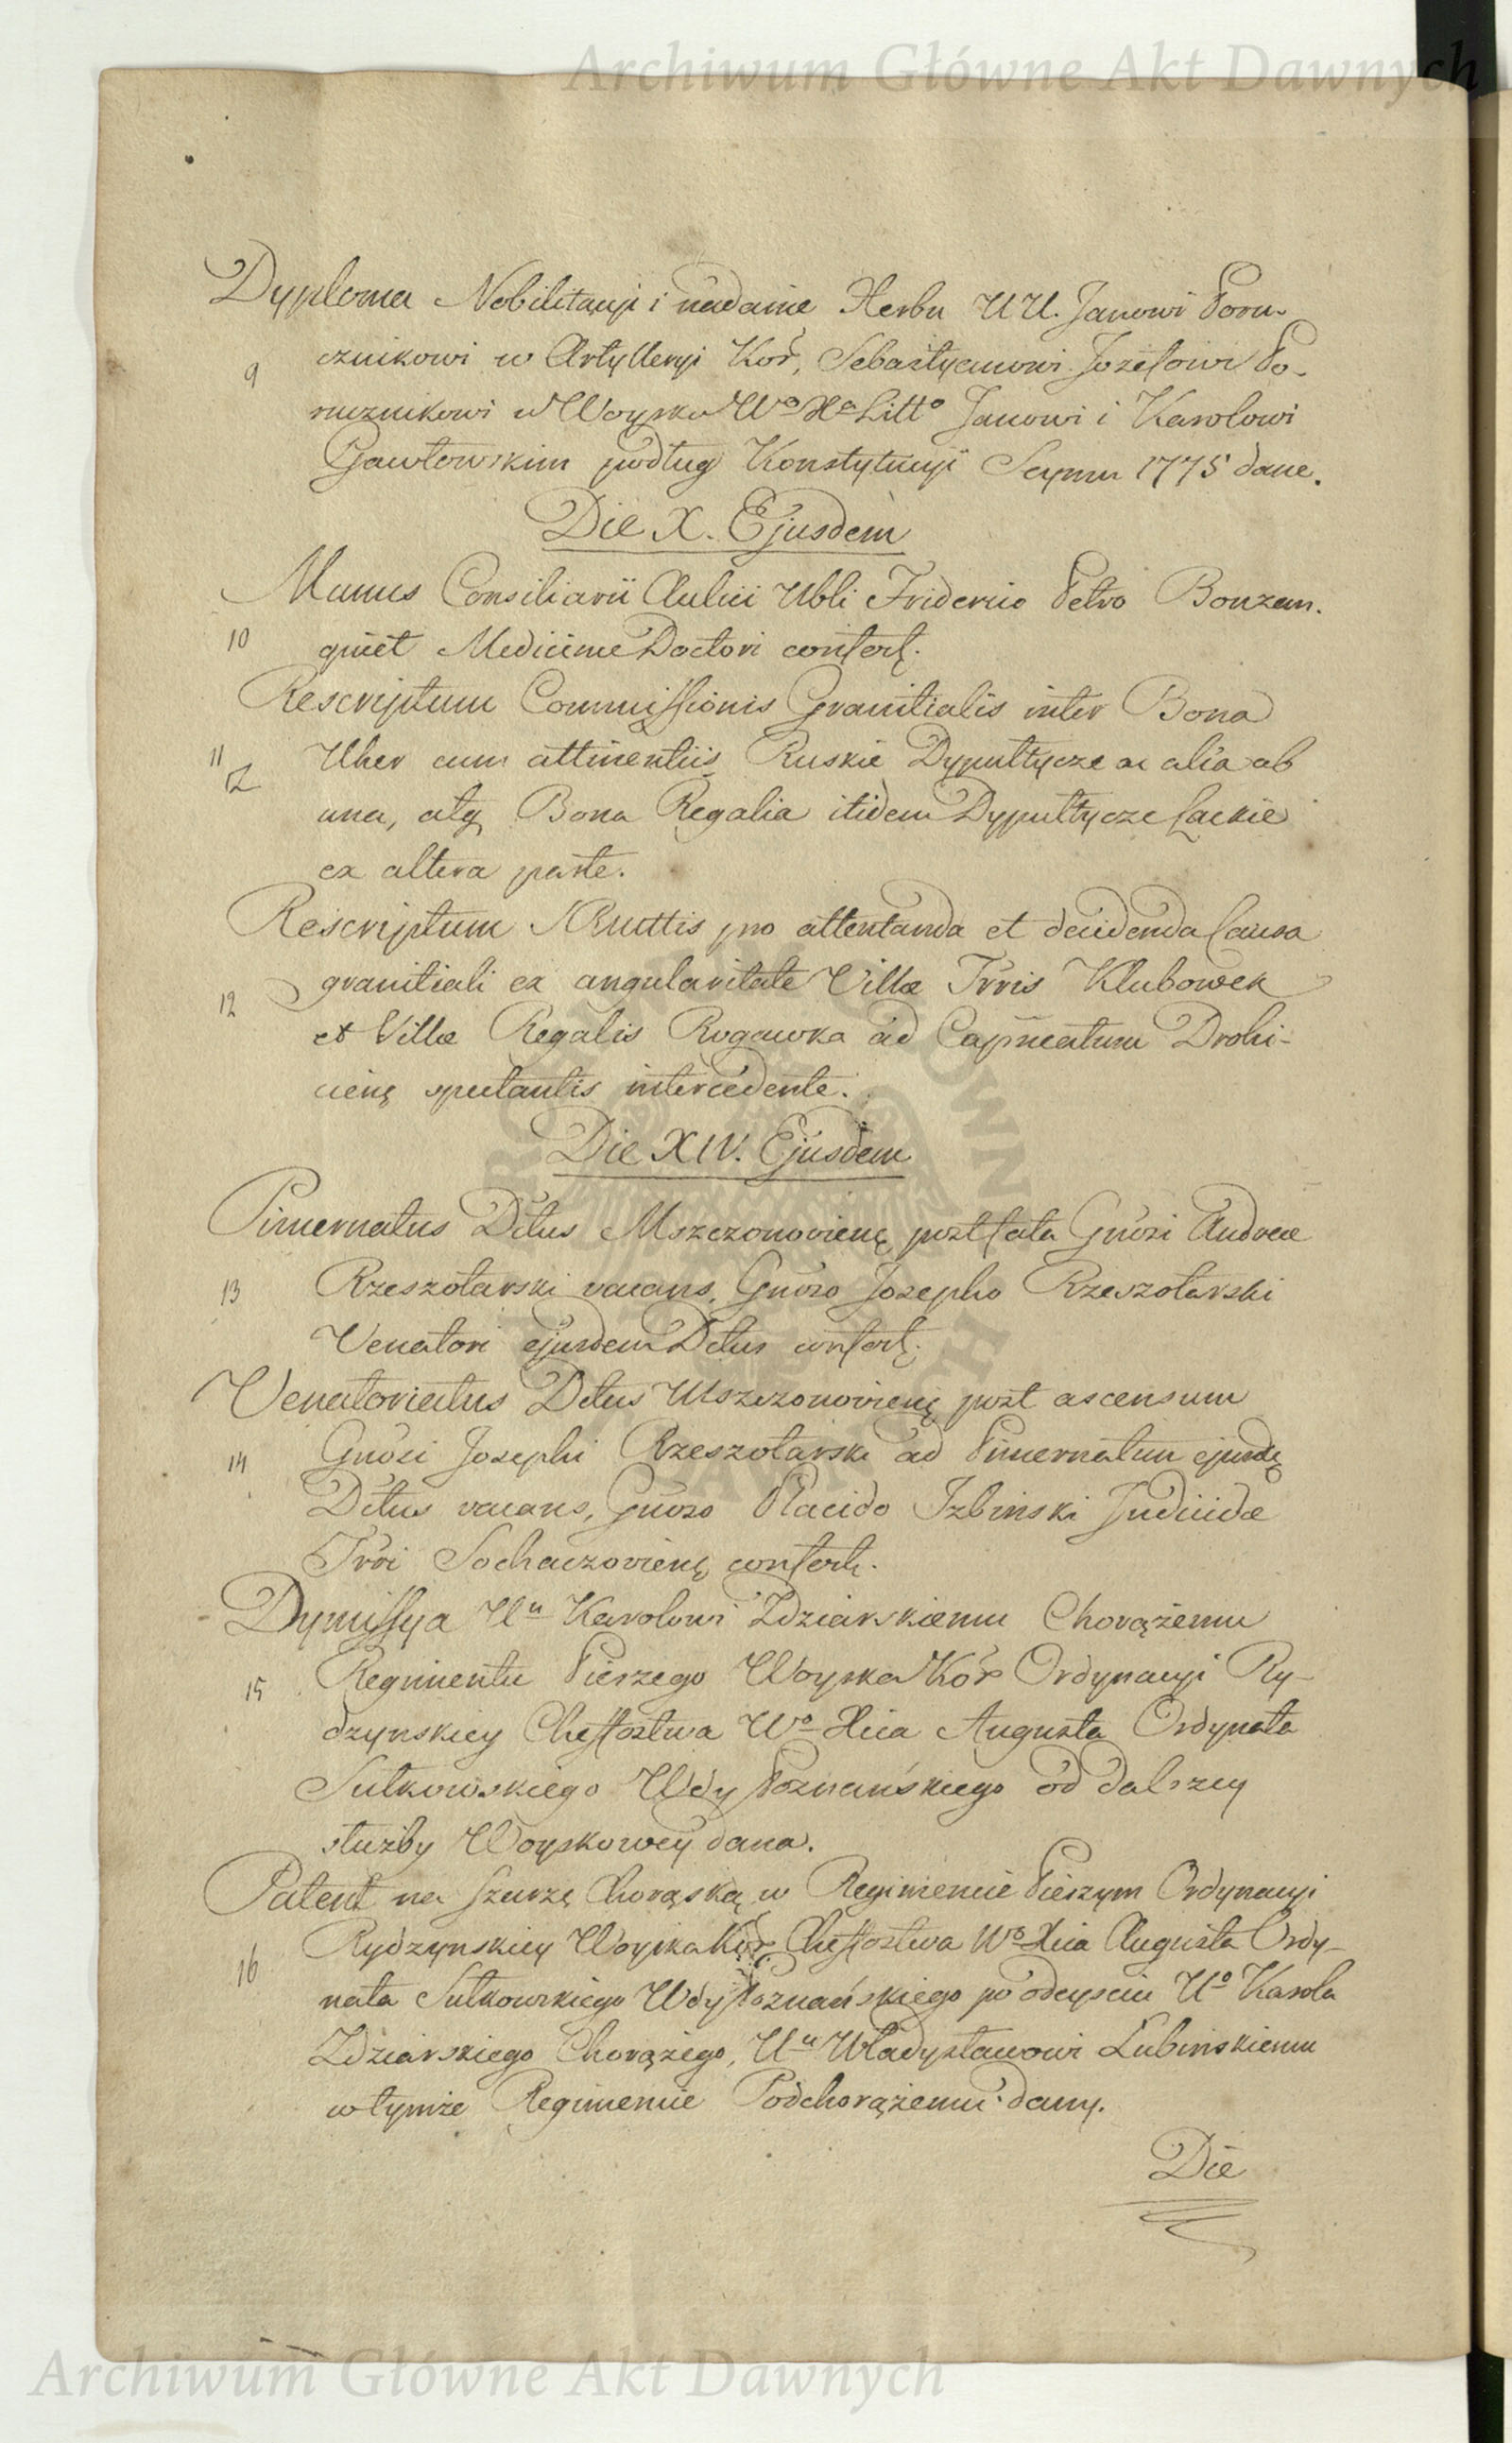 Archiwum Główne Akt Dawnych
Dyploma Nobilitacyi i nadanie Herbu UU. Janowi Poru-
9 cznikowi w Artylleryi Kor, Sebastyanowi Jozefowi Po-
rucznikowi w Woysku Wo Xa Litto Janowi i Karolowi
Gawłowskim podług Konstytucyi Seymu 1775 dane.
Die X. Ejusdem
Munus Consiliarii Aulici Nbli Friderico Petro Bonzan-
10 quiet Medicinae Doctori confert.
Rescriptum Commissionis Granitialis inter Bona
11 Uher cum attinentiis Ruskie Dypultycze ac alia ab
12 una, atq Bona Regalia itidem Dypultycze Lackie
ex altera parte.
Rescriptum pro attentanda et decidenda Causa
granitiali ex angularitate Villae Trris Klubowek
12 et Villae Regalis Rogawka ad Capneatum Drohi-
cien spectantis intercedente.
Die XIV. Ejusdem
Pincernatus Dctus Mszczonovien post fata Gnrosi Andreae
13 Rzeszotarski vacans, Gnroso Josepho Rzeszotarski
Venatori ejusdem Dctus confert.
Venatoriatus Dctus Mszczonovien post ascensum
14 Gnrosi Josephi Rzeszotarski ad Pincernatum ejusde
Dctus vacans, Gnroso Placido Izbinski Judicidae
Trri Sochaczovien confert.
Dymissya Uu Karolowi Zdziarskiemu Chorążemu
15 Regimentu Pieszego Woyska Kor Ordynacyi Ry-
dzynskiey Cheffostwa Wo Xcia Augusta Ordynata
Sułkowskiego Wdy Poznańskiego od dalszey
służby Woyskowey dana.
Patent na szarżę Chorąską w Regimencie Pieszym Ordynacyi
Rydzynskiey Woyska Kor Cheffostwa Wo Xcia Augusta Ordy-
16 nata Sułkowskiego Wdy Poznańskiego po odeysciu Uo Karola
Zdziarskiego Chorążego, Uu Władysławowi Lubinskiemu
w tymże Regimencie Podchorążemu dany.
Die
Archiwum Główne Akt Dawnych